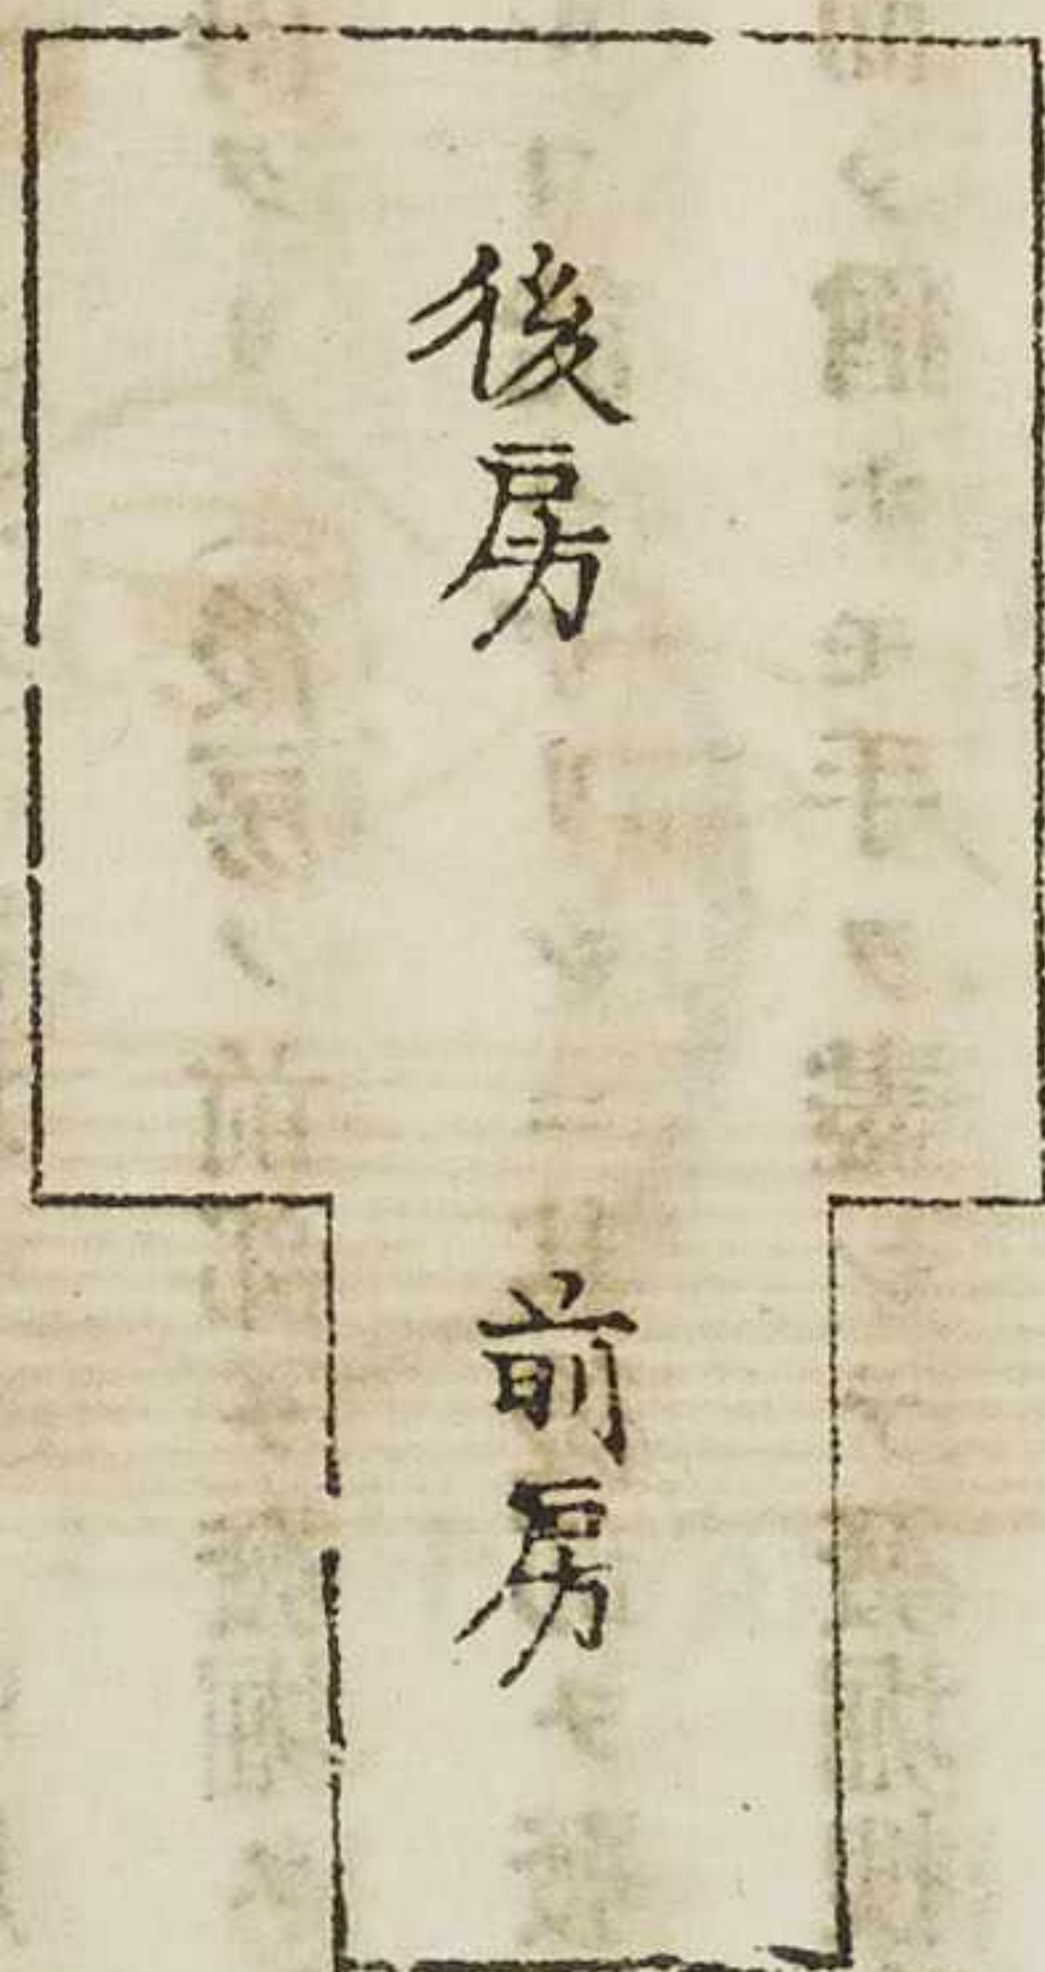 後房
前房